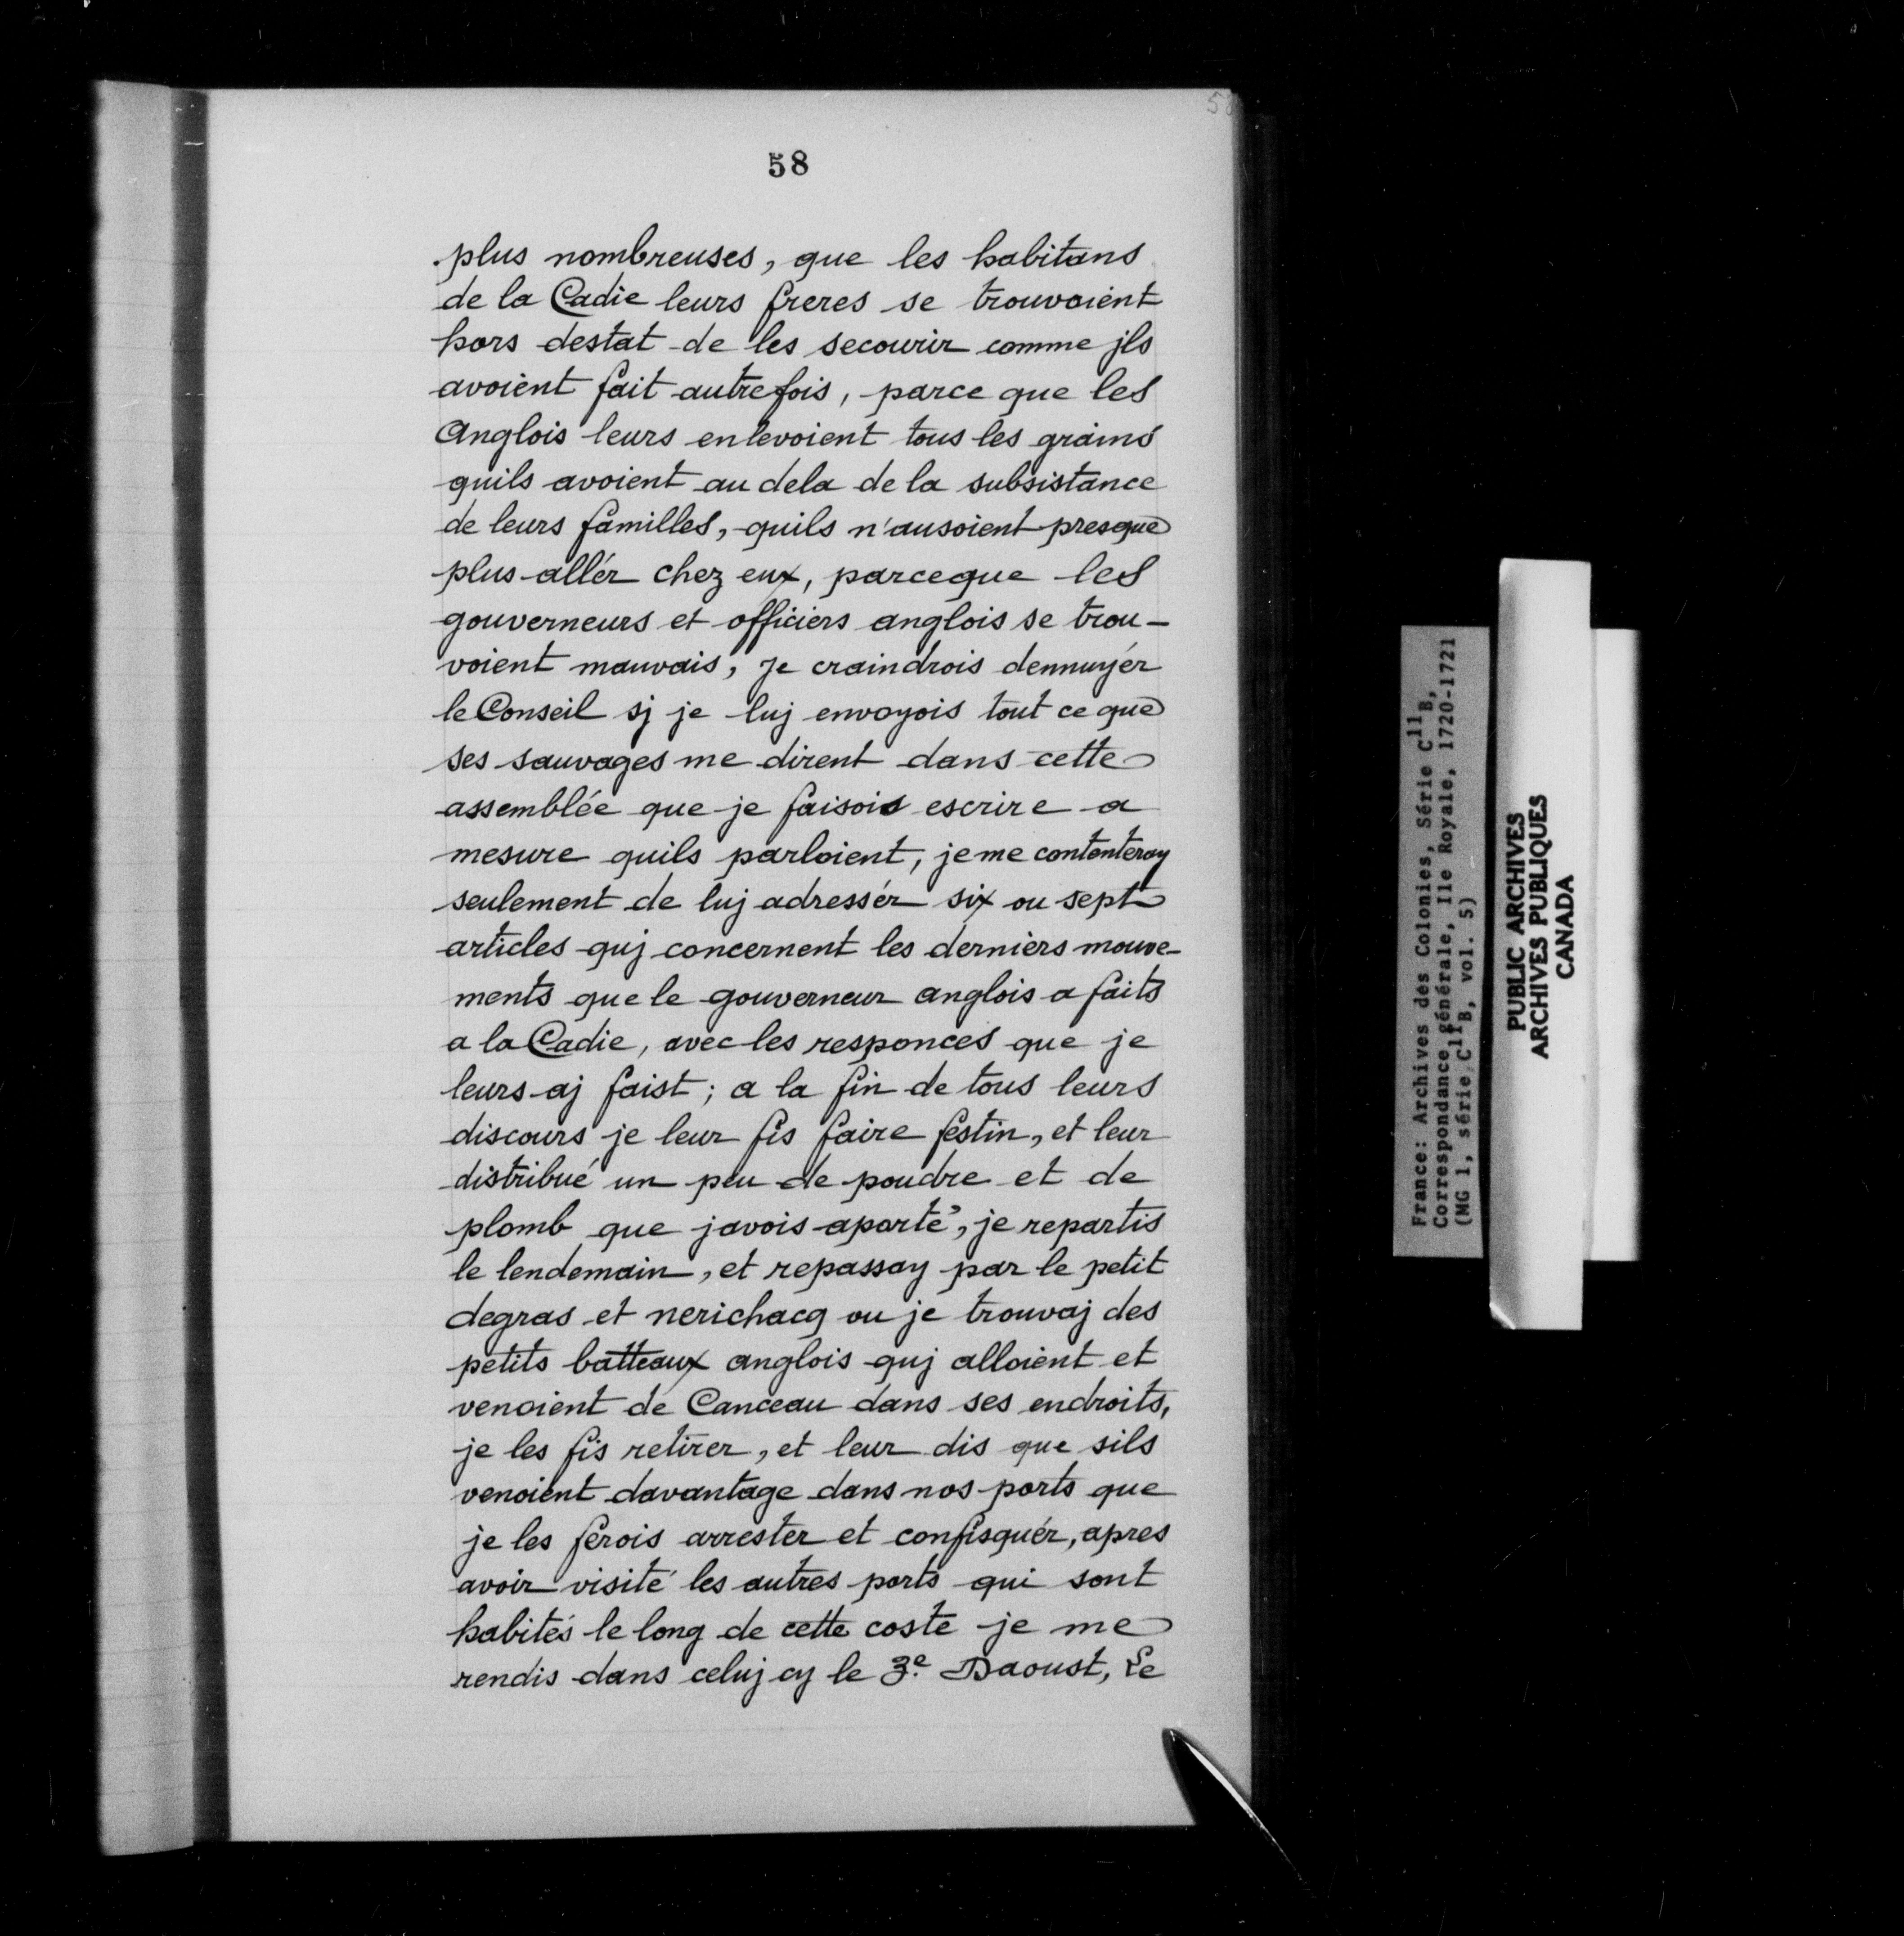 58
58
plus nombreuses, que les habitans
de la Cadie leurs freres se trouvoient
hors destat de les secourir comme jls
avoient fait autrefois, parce que les
Anglois leurs enlevoient tous les grains
quils avoient au dela de la subsistance
de leurs familles, quils n'ausoient presque
plus allér chez eux, parceque les
gouverneurs et officiers anglois se trou-
voient mauvais, Je craindrois dennuyér
le Conseil sj je luj envoyois tout ce que
ses sauvages me dirent dans cette
assemblée que je faisois escrire a
mesure quils parloient, je me contenteray
seulement de luj adressér six ou sept
articles quj concernent les derniers mouve-
ments que le gouverneur anglois a faits
a la Cadie, avec les responces que je
leurs aj faist; a la fin de tous leurs
discours je leur fis faire festin, et leur
distribué un peu de poudre et de
plomb que javois aporté, je repartis
le lendemain, et repassay par le petit
degras et nerichacq ou je trouvaj des
petits batteaux anglois quj alloient et
venoient de Canceau dans ses endroits,
je les fis retirer, et leur dis que sils
venoient davantage dans nos ports que
je les ferois arrester et confisquér, apres
avoir visité les autres ports qui sont
habités le long de cette coste je me
rendis dans celuj cy le 3e. Daoust, Le
France: Archives des Colonies, Série C11B,
Correspondance générale, Ile Royale, 1720-1721
(MG 1, série C11B, vol. 5)
PUBLIC ARCHIVES
ARCHIVES PUBLIQUES
CANADA